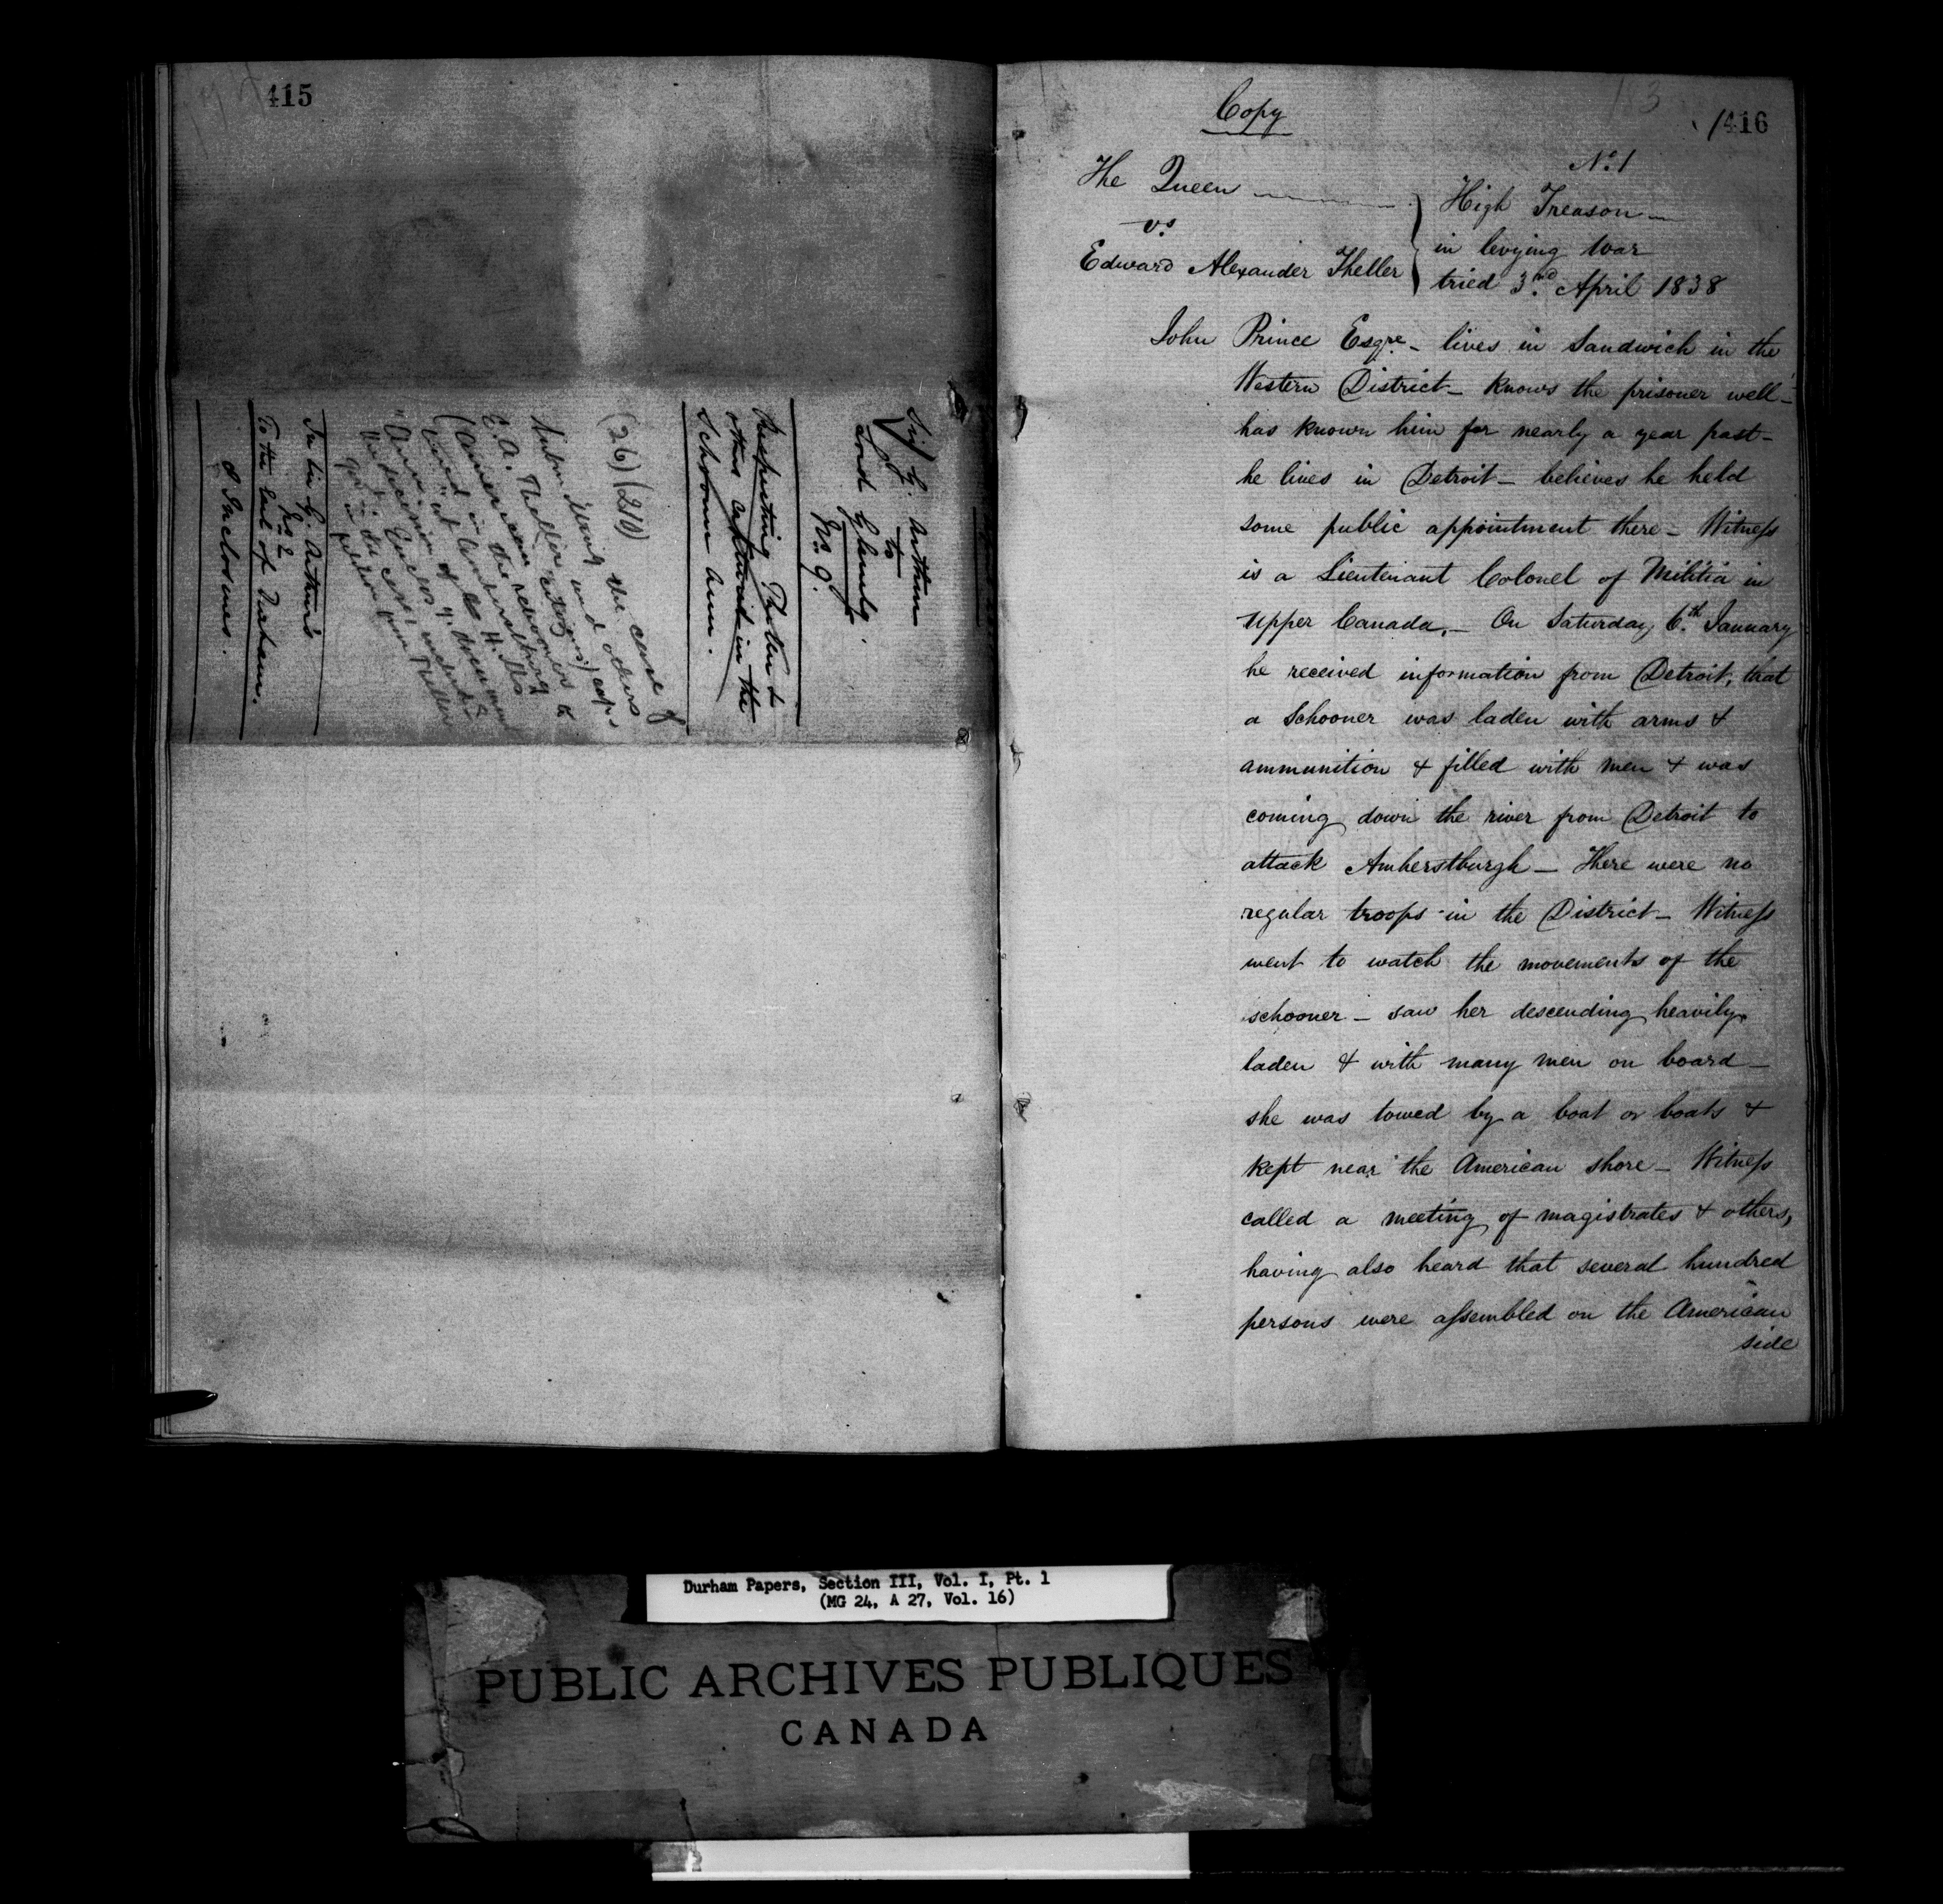 415
Sir G. Arthur
to
Lord Glenelg.
No. 9.
Respecting Theller &
others captured in the
Schooner Ann.
(26) (210)
Submitting the case of
E. A. Theller and others
(American citizens)
In Sir G. Arthur's
No 2
To the Earl of Durham.
2 Inclosures.
183
416
Copy
No. 1
The Queen
vs
Edward Alexander Theller
High Treason
in levying War
tried 3rd April 1838
John Prince Esqre - lives in Sandwich in the
Western District - knows the prisoner well -
has known him for nearly a year past -
he lives in Detroit - believes he held
some public appointment there - Witness
is a Lieutenant Colonel of Militia in
Upper Canada. - On Saturday 6th January
he received information from Detroit, that
a Schooner was laden with arms &
ammunition & filled with men & was
coming down the river from Detroit to
attack Amherstburgh - There were no
regular troops in the District - Witness
went to watch the movements of the
schooner - saw her descending heavily
laden & with many men on board -
she was towed by a boat or boats &
kept near the American shore - Witness
called a meeting of magistrates & others,
having also heard that several hundred
persons were assembled on the American
side
Durham Papers, Section III, Vol. I, Pt. 1
(MG 24, A 27, Vol. 16)
PUBLIC ARCHIVES PUBLIQUES
CANADA